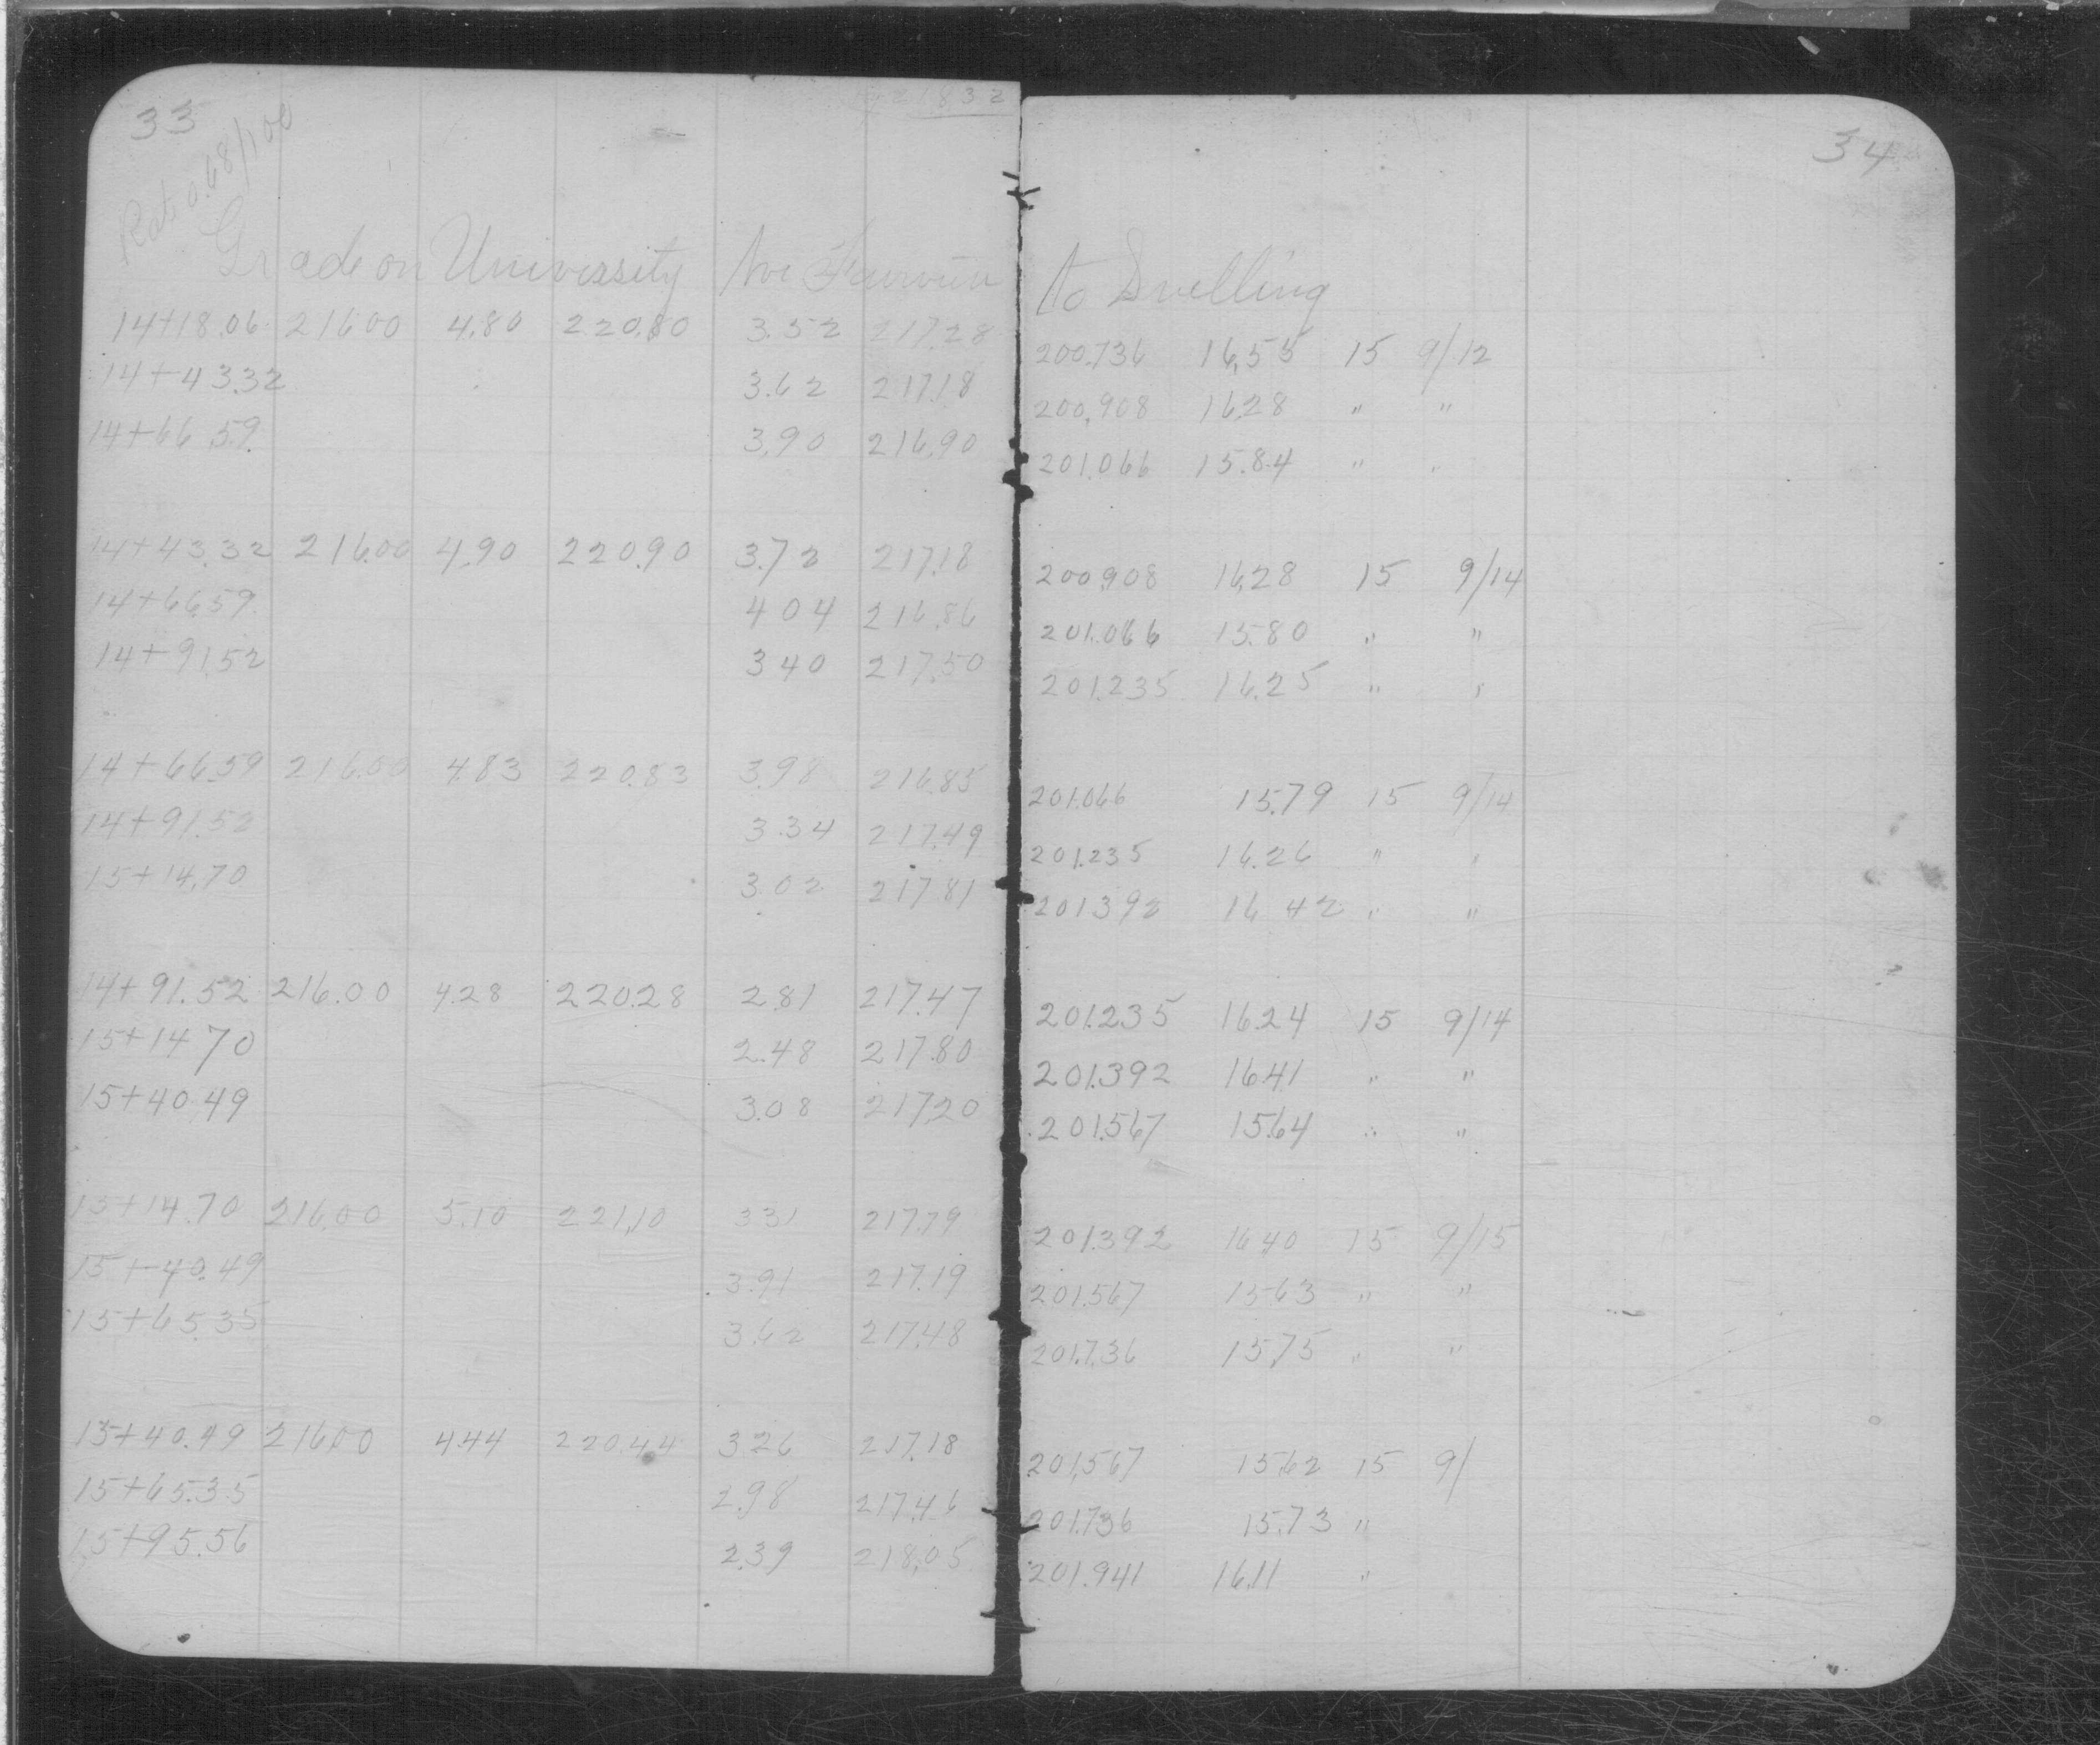 33
34
Rate 0.68/100
Grade on University Ave Fairview to Snelling
14+18.06 216.00 4.80 220.80 3.52 217.28 200.736 16.55 15 9/12
14+43.32 3.62 217.18 200.908 16.28 " "
14+66.59 3.90 216.90 201.066 15.84 " "
14+43.32 216.00 4.90 220.90 3.72 217.18 200.908 16.28 15 9/14
14+66.59 4.04 216.86 201.066 15.80 " "
14+91.52 3.40 217.50 201.235 16.25 " "
14+66.59 216.00 4.83 220.83 3.98 216.85 201.066 15.79 15 9/14
14+91.52 3.34 217.49 201.235 16.26 " "
15+14.70 3.02 217.81 201.392 16.42 " "
14+91.52 216.00 4.28 220.28 2.81 217.47 201.235 16.24 15 9/14
15+14.70 2.48 217.80 201.392 16.41 " "
15+40.49 3.08 217.20 201.567 15.64 " "
15+14.70 216.00 5.10 221.10 3.31 217.79 201.392 16.40 15 9/15
15+40.49 3.91 217.19 201.567 15.63 " "
15+65.35 3.62 217.48 201.736 15.75 " "
15+40.49 216.00 4.44 220.44 3.26 217.18 201.567 15.62 15 9/
15+65.35 2.98 217.46 201.736 15.73 "
15+95.56 2.39 218.05 201.941 16.11 "